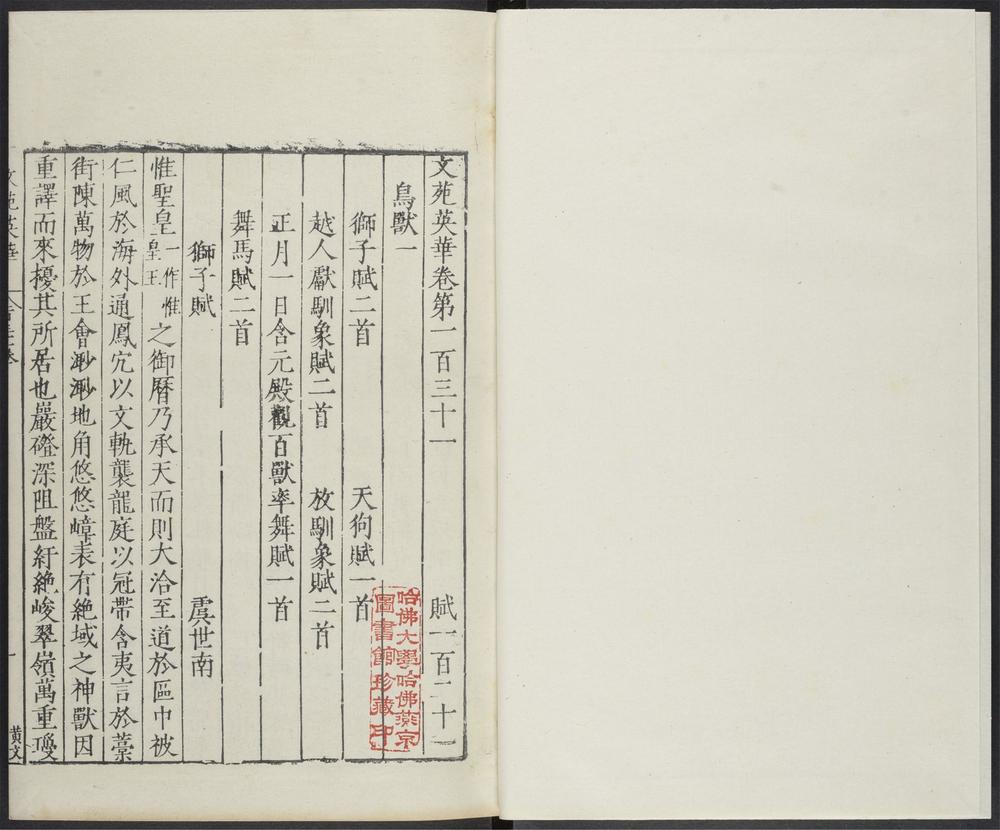 文苑英華卷第一百三十一　賦一百二十一
鳥獸一
獅子賦二首　天狗賦一首
越人獻馴象賦二首　放馴象賦二首
正月一日含元殿觀百獸率舞賦一首
舞馬賦二首
獅子賦　虞世南
惟聖皇一作惟皇王之御曆乃承天而則大洽至道於區中被
仁風於海外通鳳穴以文軌襲龍庭以冠帶含夷言於藁
街陳萬物於王會渺渺地角悠悠嶂表有絶域之神獸因
重譯而來擾其所居也巖磴深阻盤紆絶峻翠嶺萬重瓊
文苑英華
一
哈佛大學哈佛燕京
圖書館珍藏印